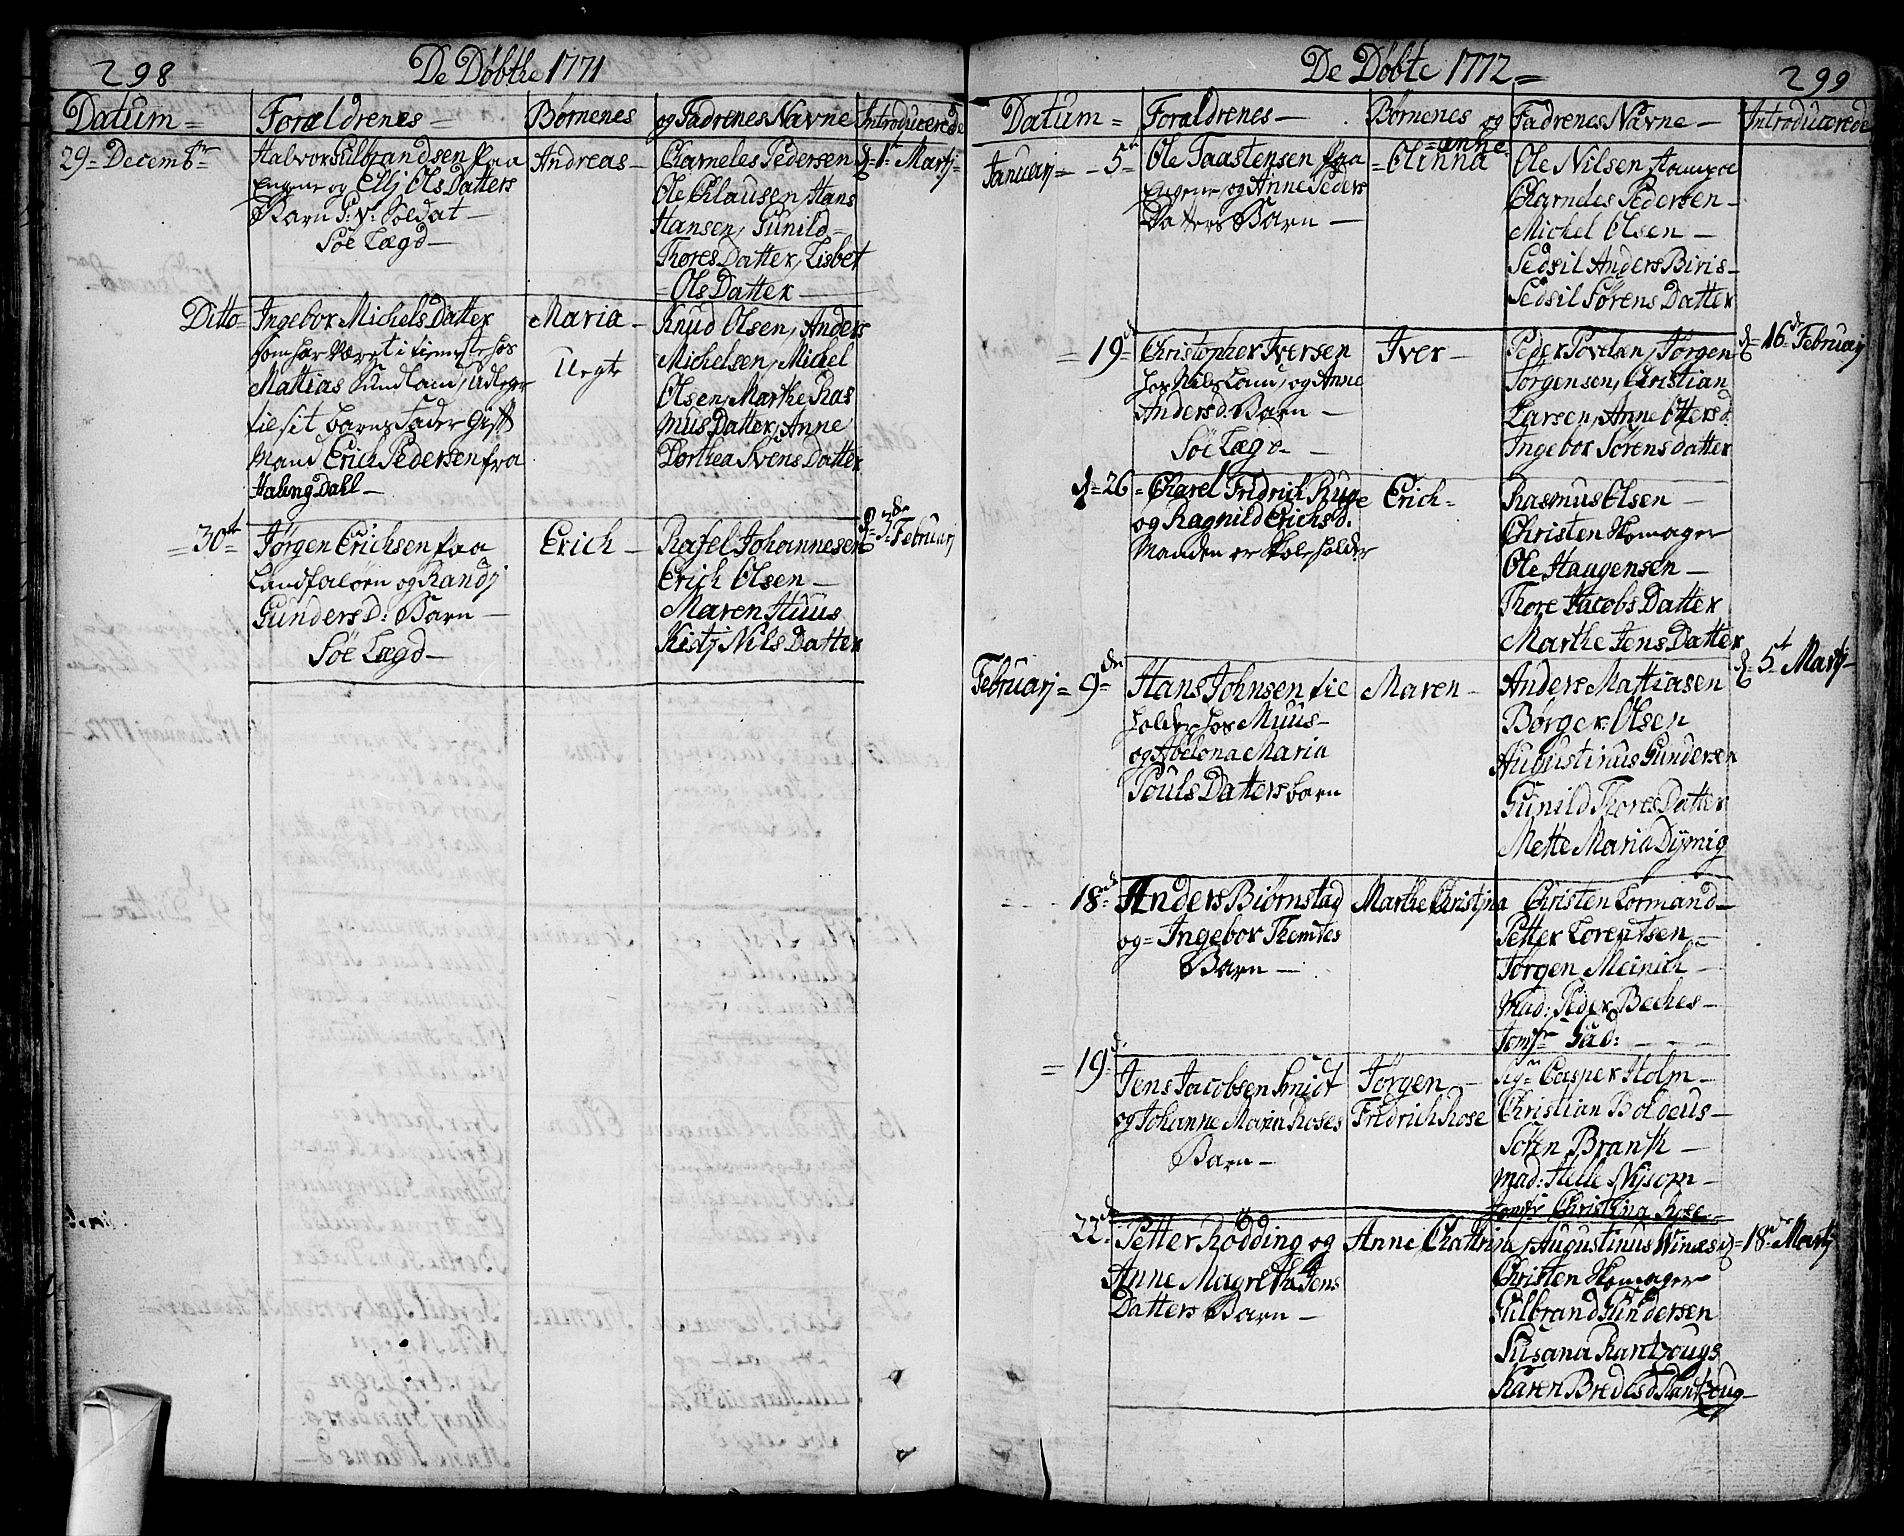 298
De Døbthe 1771
Datum = Forældrenes — Børnenes og Fadrenes Navne Introducerede
29 = Decembr
Halvor Gulbrandsen paa
Engene og Ellj Ols Datters
Barn P: v: Soldat —
Søe Lægd —
Andreas —
Charneles Pedersen
Ole Clausen, Hans
Hansen, Gunild =
Thores Datter, Lisbet
Ols Datter —
d: 1t Martj =
Ditto =
Ingebor Michels Datter
som har været i tieneste hos
Mattias Sundland, Udleger
til sit barns fader Gift
Mand Erich Pedersen fra
Haling Dahl —
Maria —
Uegte
Knud Olsen, Anders
Michelsen, Michel
Olsen, Marthe Ras
mus Datter, Anne
Dorthea Svens Datter
= 30t =
Jørgen Erichsen paa
og Randj
Gundersd: Barn —
Søe Lægd —
Erich —
Rafel Johannesen
Erich Olsen —
Maren Huus
Kistj Nils Datter
d = 3de Februarj
De Døbte 1772 =
299
Datum = Forældrenes — Børnenes og Fadrenes Navne — Introducerede
Januarj = - 5t
Ole Taastensen paa
Engene og Anne Peders
Datters Barn —
= anne
= Olinna
Ole Nilsen
Charneles Pedersen —
Michel Olsen —
Sedsil Anders Biris —
Sedsil Sørens Datter
= 19d
Christopher Iversen
hos Nils Lam, og Anne
Andersd. Barn —
Søe Lægd — —
Iver —
Peder Povelsen, Jørgen
Jørgensen, Christian
Larsen, Anne Ottersd.
Ingebor Sørens datter
d = 16de Februarj
d = 26 =
Charel Fridrich Ruge
og Ragnild Erichsd.
Manden er Skoleholder
Erich =
Rasmus Olsen —
Christen Skomager
Ole Haugensen —
Thore Jacobs Datter
Marthe Jens Datter
Februarj = 9de
Hans Johnsen til
holder hos Muus —
og Helena Maria
Pouls Datters barn
Maren —
Anders Mattiasen
Børger Olsen
Augustinus Gundersen
Gunild Thores Datter
Mette Maria Dymig
d = 5t Martj —
18de
Anders Biørnstad
og = Ingebor Themtes
Barn —
Marthe Christina
Christen Lormand —
Petter Lorentsen —
Jørgen Meinich —
Mad: Peder Beches —
Jomfr Gad:
= 19d.
Jens Jacobsen Smidt
og Johanne Maria Roses
Barn —
Jørgen —
Fridrich Rose
Sigr Casper Holm —
Christian Boldeus —
Søren Brank —
Mad: Helle Nysom —
Jomfr Christina Rose =
22d
Petter Rødding og
Anne Magretha Jens
Datters Barn —
Anne Chattrine
Augustinus
Christen Skomager
Gulbrand Gundersen
Susana Rantzougs
Karen Bredesd Rantzoug —
d = 18de Martj